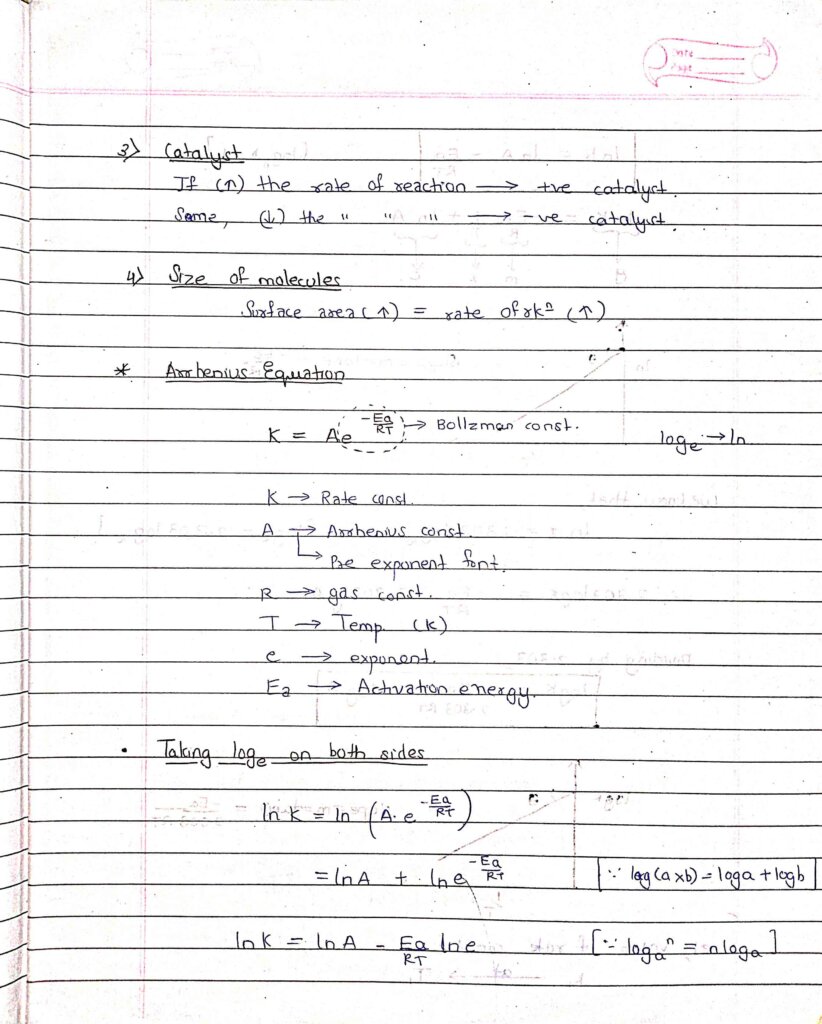 Date
Page
3) Catalyst
If (↑) the rate of reaction → +ve catalyst.
Same, (↓) the " " " → -ve catalyst.
4) Size of molecules
Surface area (↑) = rate of rxⁿ (↑)
* Arrhenius Equation
K = Ae^(-Ea/RT) → Bollzman const. logₑ → ln
K → Rate const.
A → Arrhenius const.
↳ Pre exponent font.
R → gas const.
T → Temp. (K)
e → exponent.
Ea → Activation energy.
• Taking logₑ on both sides
ln K = ln (A. e^(-Ea/RT))
= ln A + ln e^(-Ea/RT) [∵ log(a×b) = log a + log b]
ln K = ln A - Ea/RT ln e [∵ logₐⁿ = n log a]